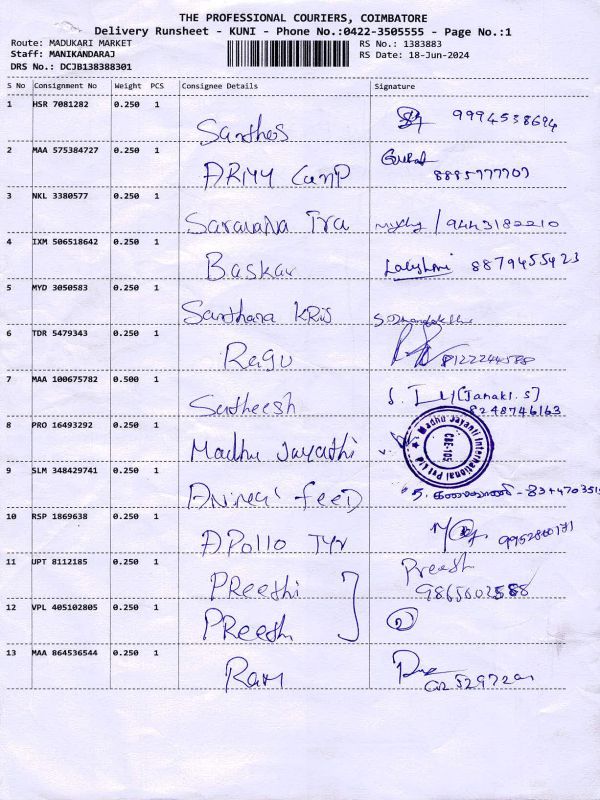 THE PROFESSIONAL COURIERS, COIMBATORE
Delivery Runsheet - KUNI - Phone No.:0422-3505555 - Page No.:1
Route: MADUKARI MARKET RS No.: 1383883
Staff: MANIKANDARAJ RS Date: 18-Jun-2024
DRS No.: DCJB138388301
S No Consignment No Weight PCS Consignee Details Signature
1 HSR 7081282 0.250 1 Santhos 9994538694
2 MAA 575384727 0.250 1 ARMY Camp 8885777707
3 NKL 3380577 0.250 1 Saravana Tra / 9443182210
4 IXM 506518642 0.250 1 Baskar Lakshmi 8879455423
5 MYD 3050583 0.250 1 Santhana KRIS
6 TDR 5479343 0.250 1 Ragu 8122244588
7 MAA 100675782 0.500 1 Satheesh (Janaki. S) 8248746163
8 PRO 16493292 0.250 1 Madhu Jayathi Madhu Jayanti International Pvt Ltd CBE-105
9 SLM 348429741 0.250 1 Animal feed
10 RSP 1869638 0.250 1 Apollo Tyr
11 UPT 8112185 0.250 1 PReethi Preeth 9865602588
12 VPL 405102805 0.250 1 PReeth 2
13 MAA 864536544 0.250 1 Ram